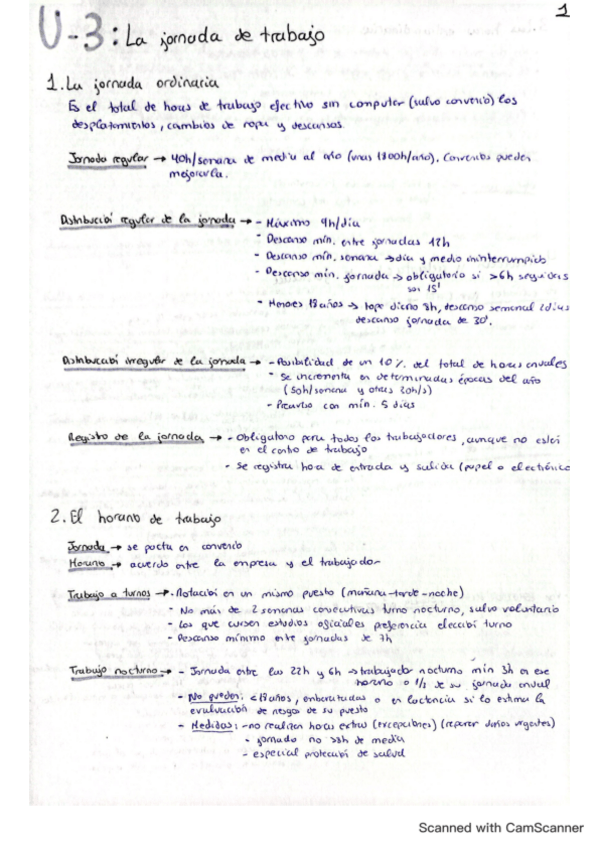 1
U-3: La jornada de trabajo
1. La jornada ordinaria
Es el total de horas de trabajo efectivo sin computer (salvo convenio) los
desplazamientos, cambios de ropa y descansos.
Jornada regular → 40h/semana de media al año (unas 1800h/año). Convenios pueden
mejorarla.
Distribució regular de la jornada → - Máximo 9h/día
- Descanso mín. entre jornadas 12h
- Descanso mín. semana → día y medio ininterrumpido
- Descanso mín. jornada → obligatorio si >6h seguidas
son 15'
- Menores 18 años → tope diario 8h, descanso semanal 2 días
descanso jornada de 30'.
Distribució irregular de la jornada → - Posibilidad de un 10% del total de horas anuales
- Se incrementa en determinadas épocas del año
(50h/semana y otras 30h/s)
- Preaviso con mín. 5 días
Registro de la jornada → - Obligatorio para todos los trabajadores, aunque no estén
en el centro de trabajo
- Se registra hora de entrada y salida (papel o electrónico
2. El horario de trabajo
Jornada → se pacta en convenio
Horario → acuerdo entre la empresa y el trabajador
Trabajo a turnos → - Rotació en un mismo puesto (mañana-tarde-noche)
- No más de 2 semanas consecutivas turno nocturno, salvo voluntario
- Los que cursen estudios oficiales preferencia elecció turno
- Descanso mínimo entre jornadas de 7h
Trabajo nocturno → - Jornada entre las 22h y 6h → trabajador nocturno mín 3h en ese
horario o 1/3 de su jornada anual
- No pueden: <18 años, embarazadas o en lactancia si lo estima la
evaluación de riesgos de su puesto
- Medidas: - no realizar horas extras (excepciones) (reparar daños urgentes)
- jornada no >8h de media
- especial protecció de salud
Scanned with CamScanner